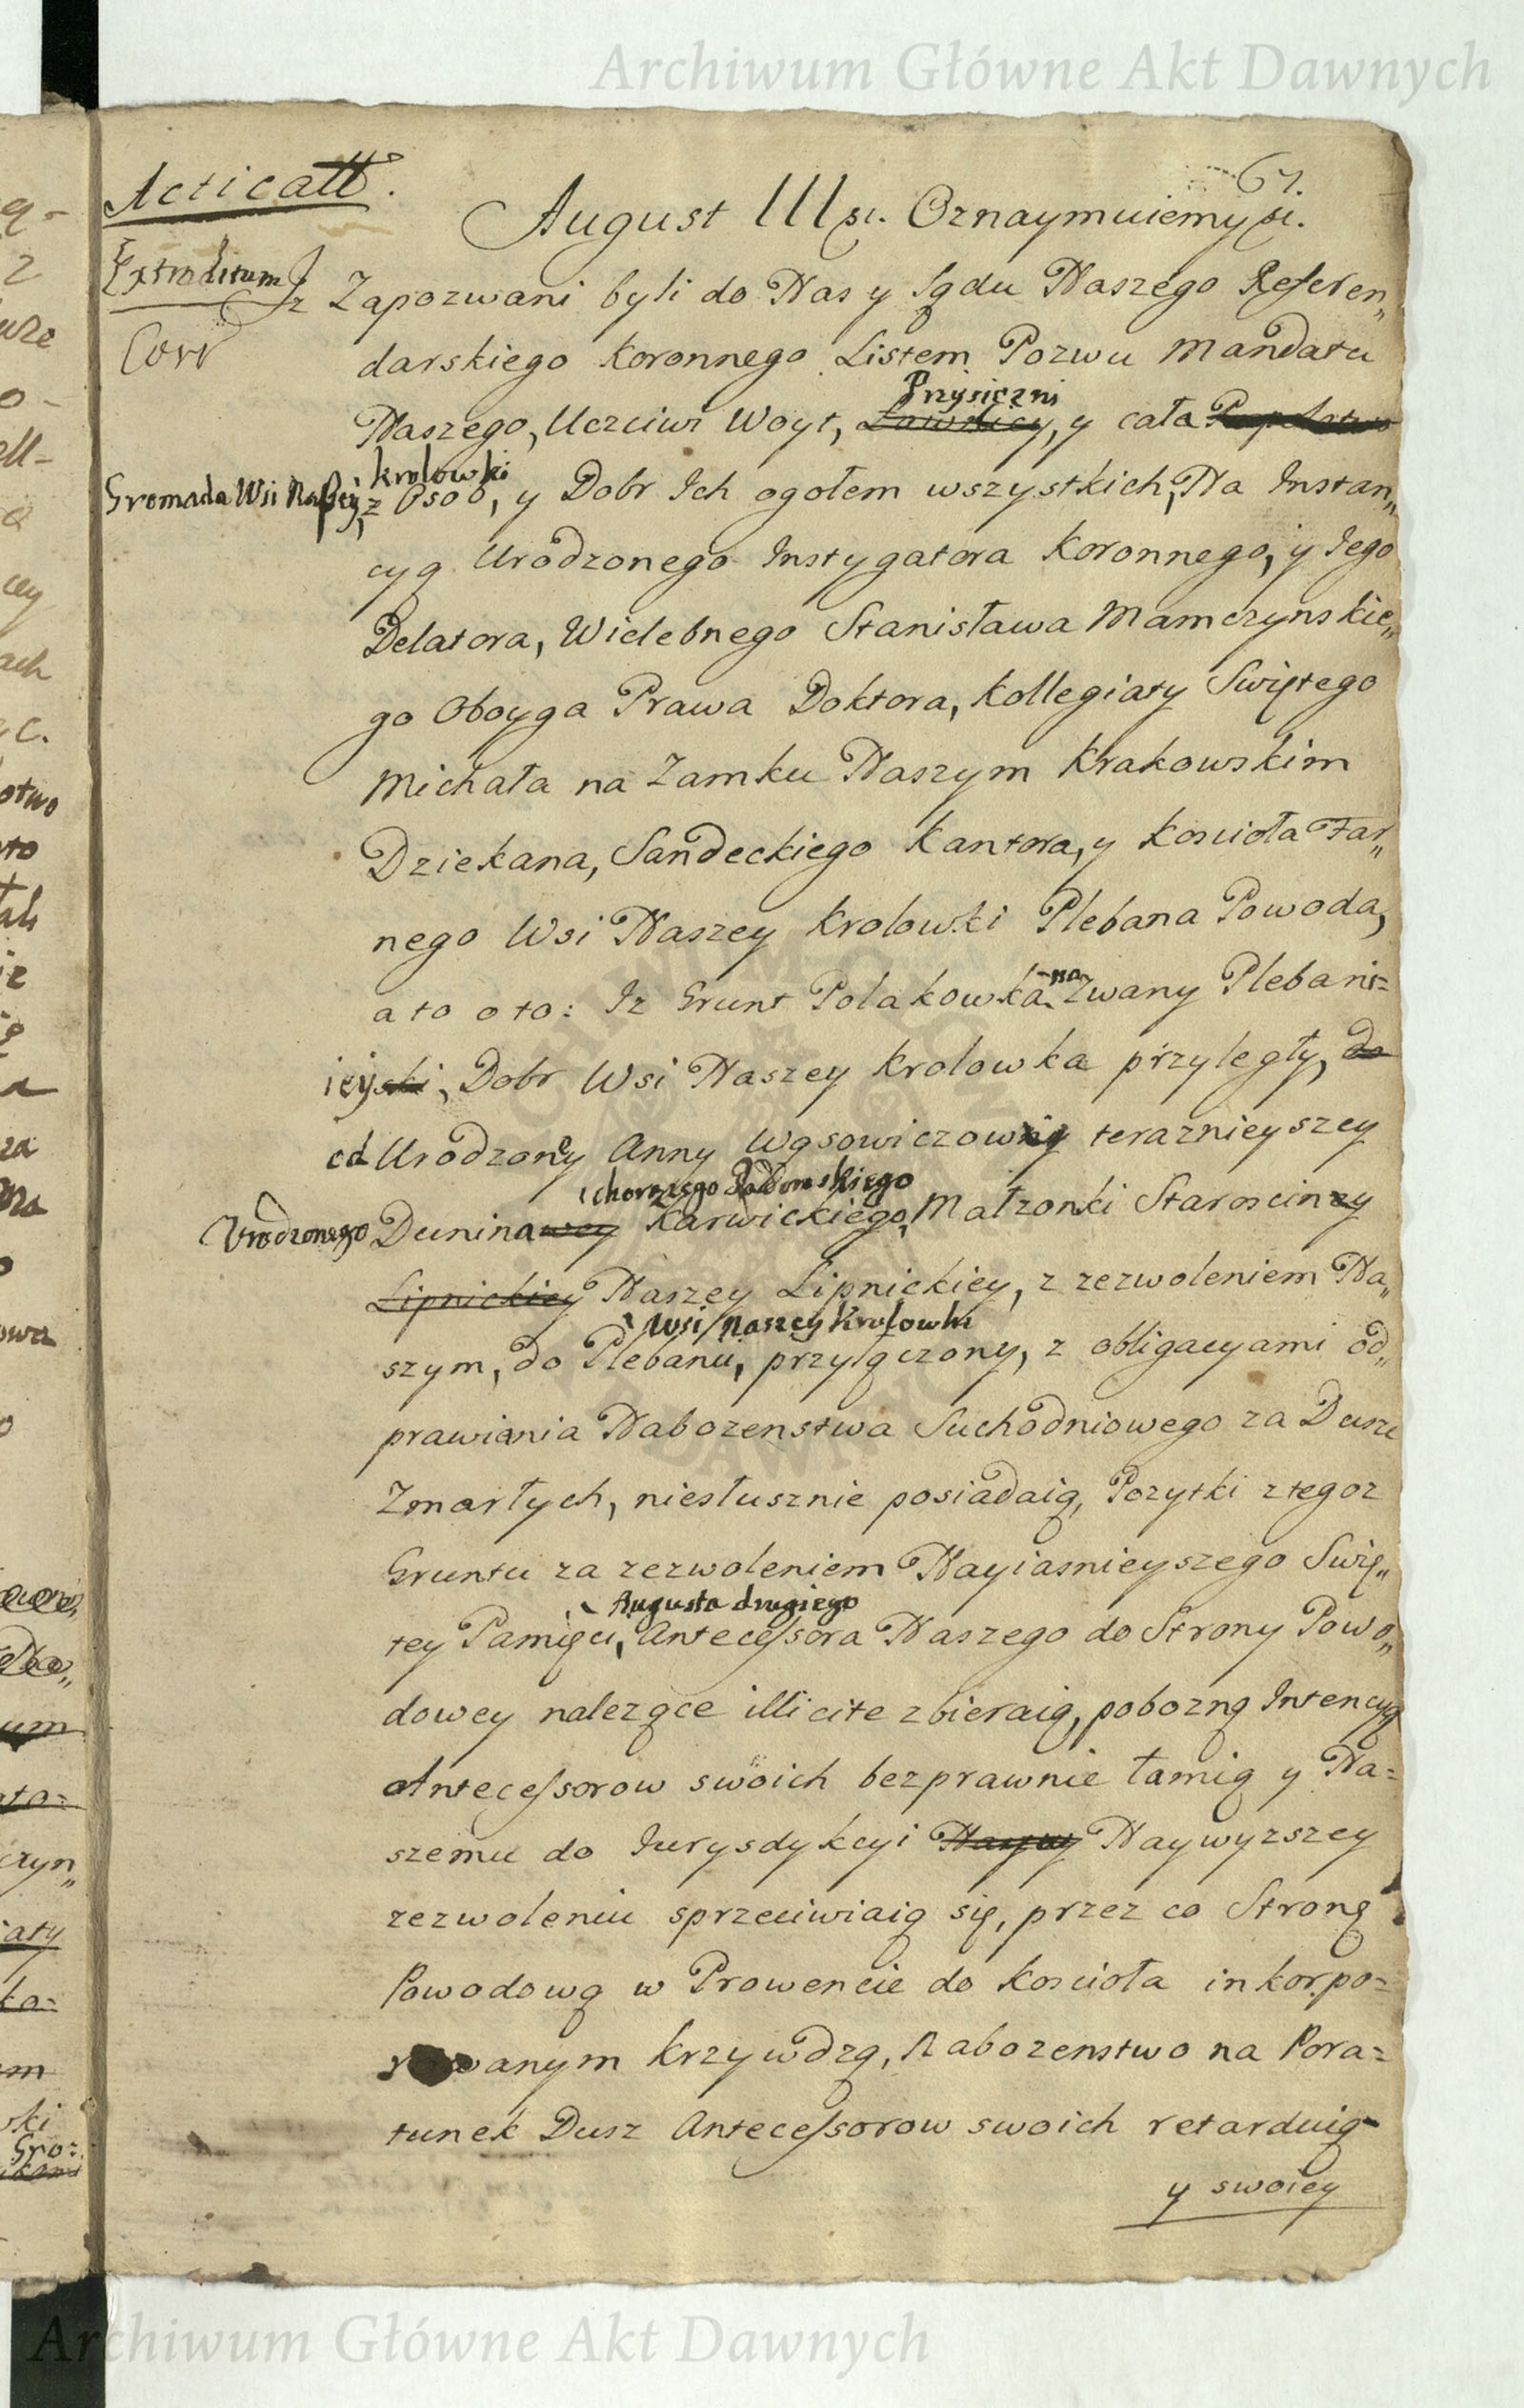 Archiwum Główne Akt Dawnych
67.
Acticatt.
August III sc. Oznaymuiemy sc.
Extraditum
Corr
Iz Zapozwani byli do Nas y Sądu Naszego Referen„
darskiego Koronnego Listem Pozwu Mandatu
Przysiczni
Naszego, Uczciwi Woyt, Ławnicy, y cała
Gromada Wsi Naszey krolowki
z Osob, y Dobr Ich ogołem wszystkich, Na Instan„
cyą Urodzonego Instygatora Koronnego, y Iego
Delatora, Wielebnego Stanisława Mamczynskie„
go Oboyga Prawa Doktora, Kollegiaty Swiętego
Michała na Zamku Naszym Krakowskim
Dziekana, Sandeckiego Kantora, y Koscioła Far„
nego Wsi Naszey Krolowki Plebana Powoda,
na
a to o to: Iz Grunt Polakowka Zwany Plebani=
ieyski, Dobr Wsi Naszey Krolowka przyległy, do
od Urodzoney Anny Wąsowiczowny teraznieyszey
chorążego Radomskiego
Urodzonego Duninawey Karwickiego, Małzonki Staroscinzy
Lipnickiey Naszey Lipnickiey, z zezwoleniem Na„
Wsi Naszey Krolowki
szym, do Plebanii, przyłączony, z obligacyami od„
prawiania Nabozenstwa Suchodniowego za Dusze
Zmarłych, niesłusznie posiadaią, Pozytki z tegoz
Gruntu za zezwoleniem Nayiasnieyszego Swię„
Augusta drugiego
tey Pamięci, Antecessora Naszego do Strony Powo„
dowey nalezące illicite zbieraią, pobozną Intencyą
Antecessorow swoich bezprawnie łamią y Na=
szemu do Iurysdykcyi Naywy Naywyzszey
zezwoleniu sprzeciwiaią się, przez co Stronę
Powodową w Prowencie do Koscioła inkorpo=
rowanym krzywdzą, Nabozenstwo na Pora=
tunek Dusz Antecessorow swoich retarduią
y swoiey
Archiwum Główne Akt Dawnych